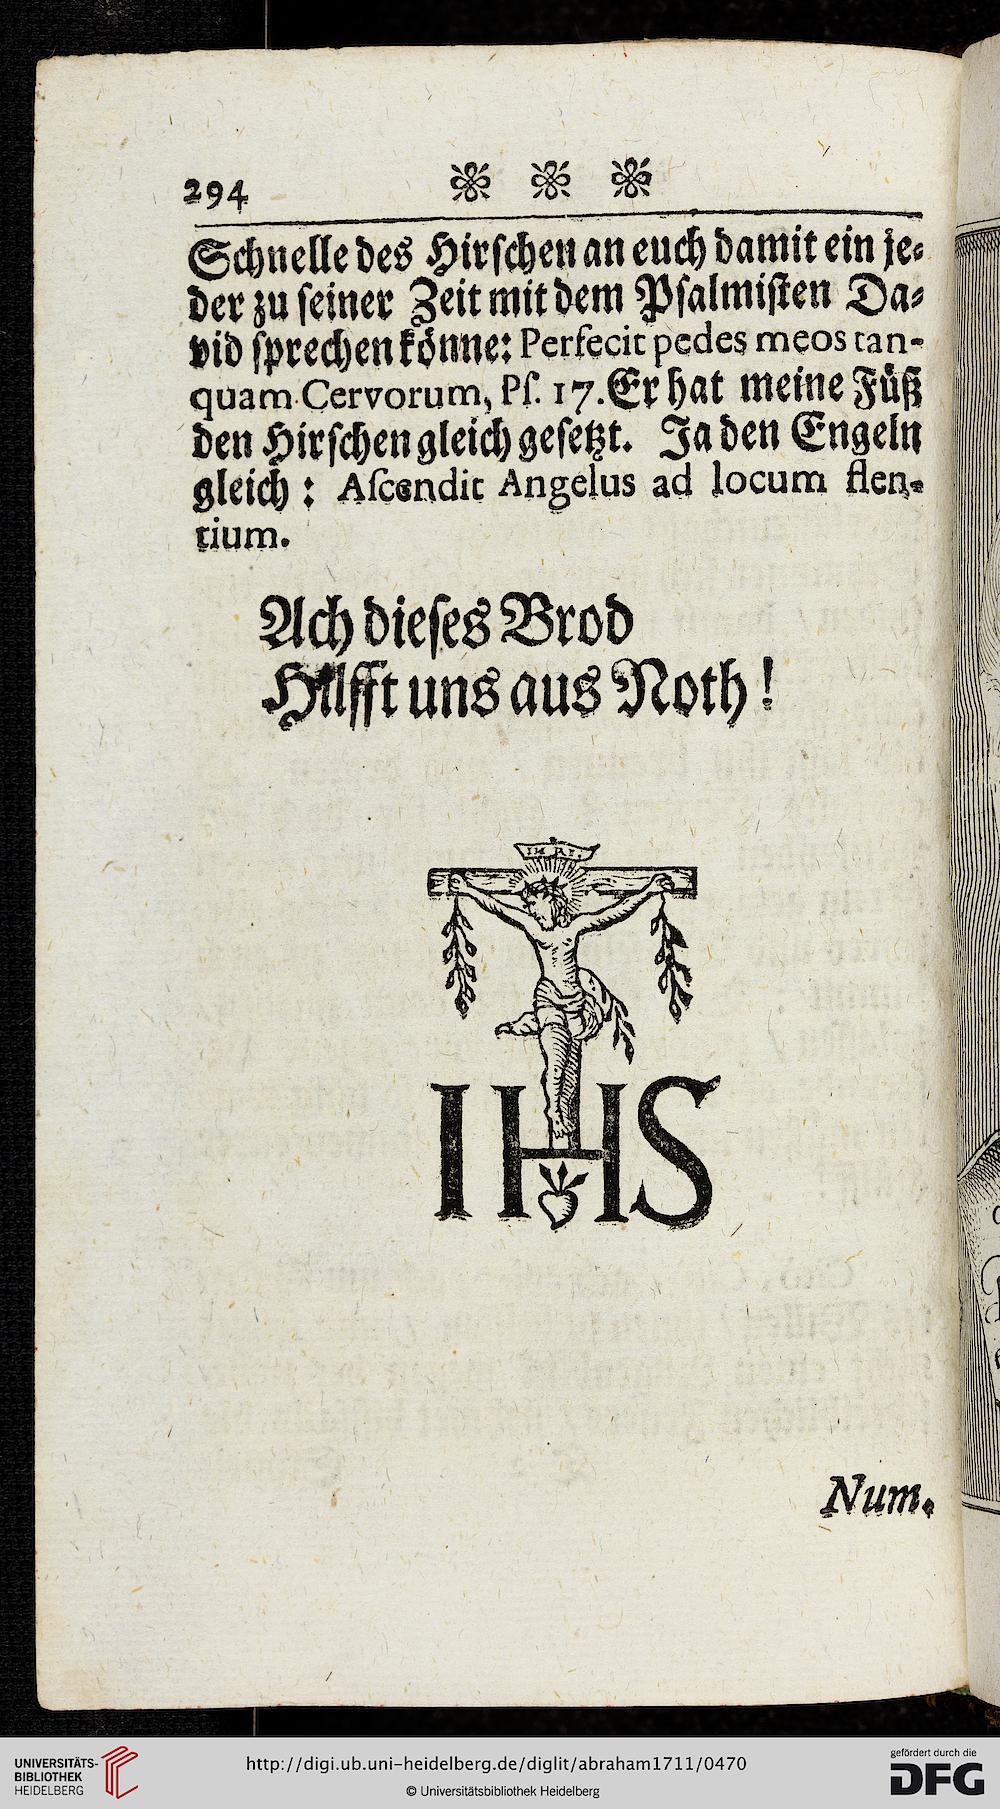 294
Schnelle des Hirſchen an euch damit ein je⸗
der zu ſeiner Zeit mit dem Pſalmiſten Da⸗
vid ſprechen könne: Perfecit pedes meos tan-
quam Cervorum, Pſ. 17. Er hat meine Füß
den Hirſchen gleich geſetzt. Ja den Engeln
gleich: Aſcendit Angelus ad locum flen-
tium.
Ach dieſes Brod
Hilfft uns aus Noth!
INRI.
IHS
Num.
UNIVERSITÄTS-
BIBLIOTHEK
HEIDELBERG
http://digi.ub.uni-heidelberg.de/diglit/abraham1711/0470
© Universitätsbibliothek Heidelberg
gefördert durch die
DFG